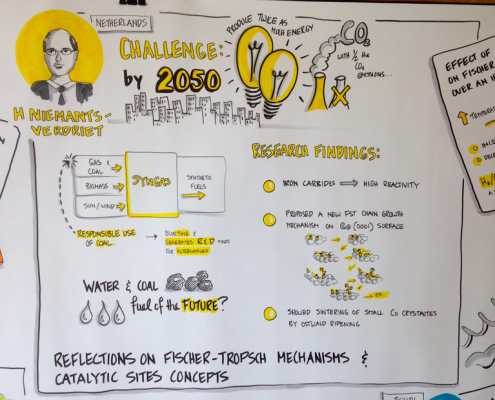 NETHERLANDS
H NIEMANTS-
VERDRIET
CHALLENGE:
by 2050
PRODUCE TWICE AS
MUCH ENERGY
CO2
WITH 1/2 the
CO2
EMISSIONS...
GAS &
COAL
BIOMASS
SUN/WIND
SYNGAS
SYNTHETIC
FUELS
RESPONSIBLE USE
OF COAL
GENERATES R&D
FOR ALTERNATIVES
WATER & COAL
fuel of the FUTURE?
RESEARCH FINDINGS:
IRON CARBIDES → HIGH REACTIVITY
PROPOSED A NEW FST CHAIN GROWTH
MECHANISM ON Co (0001) SURFACE
SHOWED SINTERING OF SMALL Co CRYSTALITES
BY OSTWALD RIPENING
REFLECTIONS ON FISCHER-TROPSCH MECHANISMS &
CATALYTIC SITES CONCEPTS
EFFECT OF
ON FISCHER
OVER AN